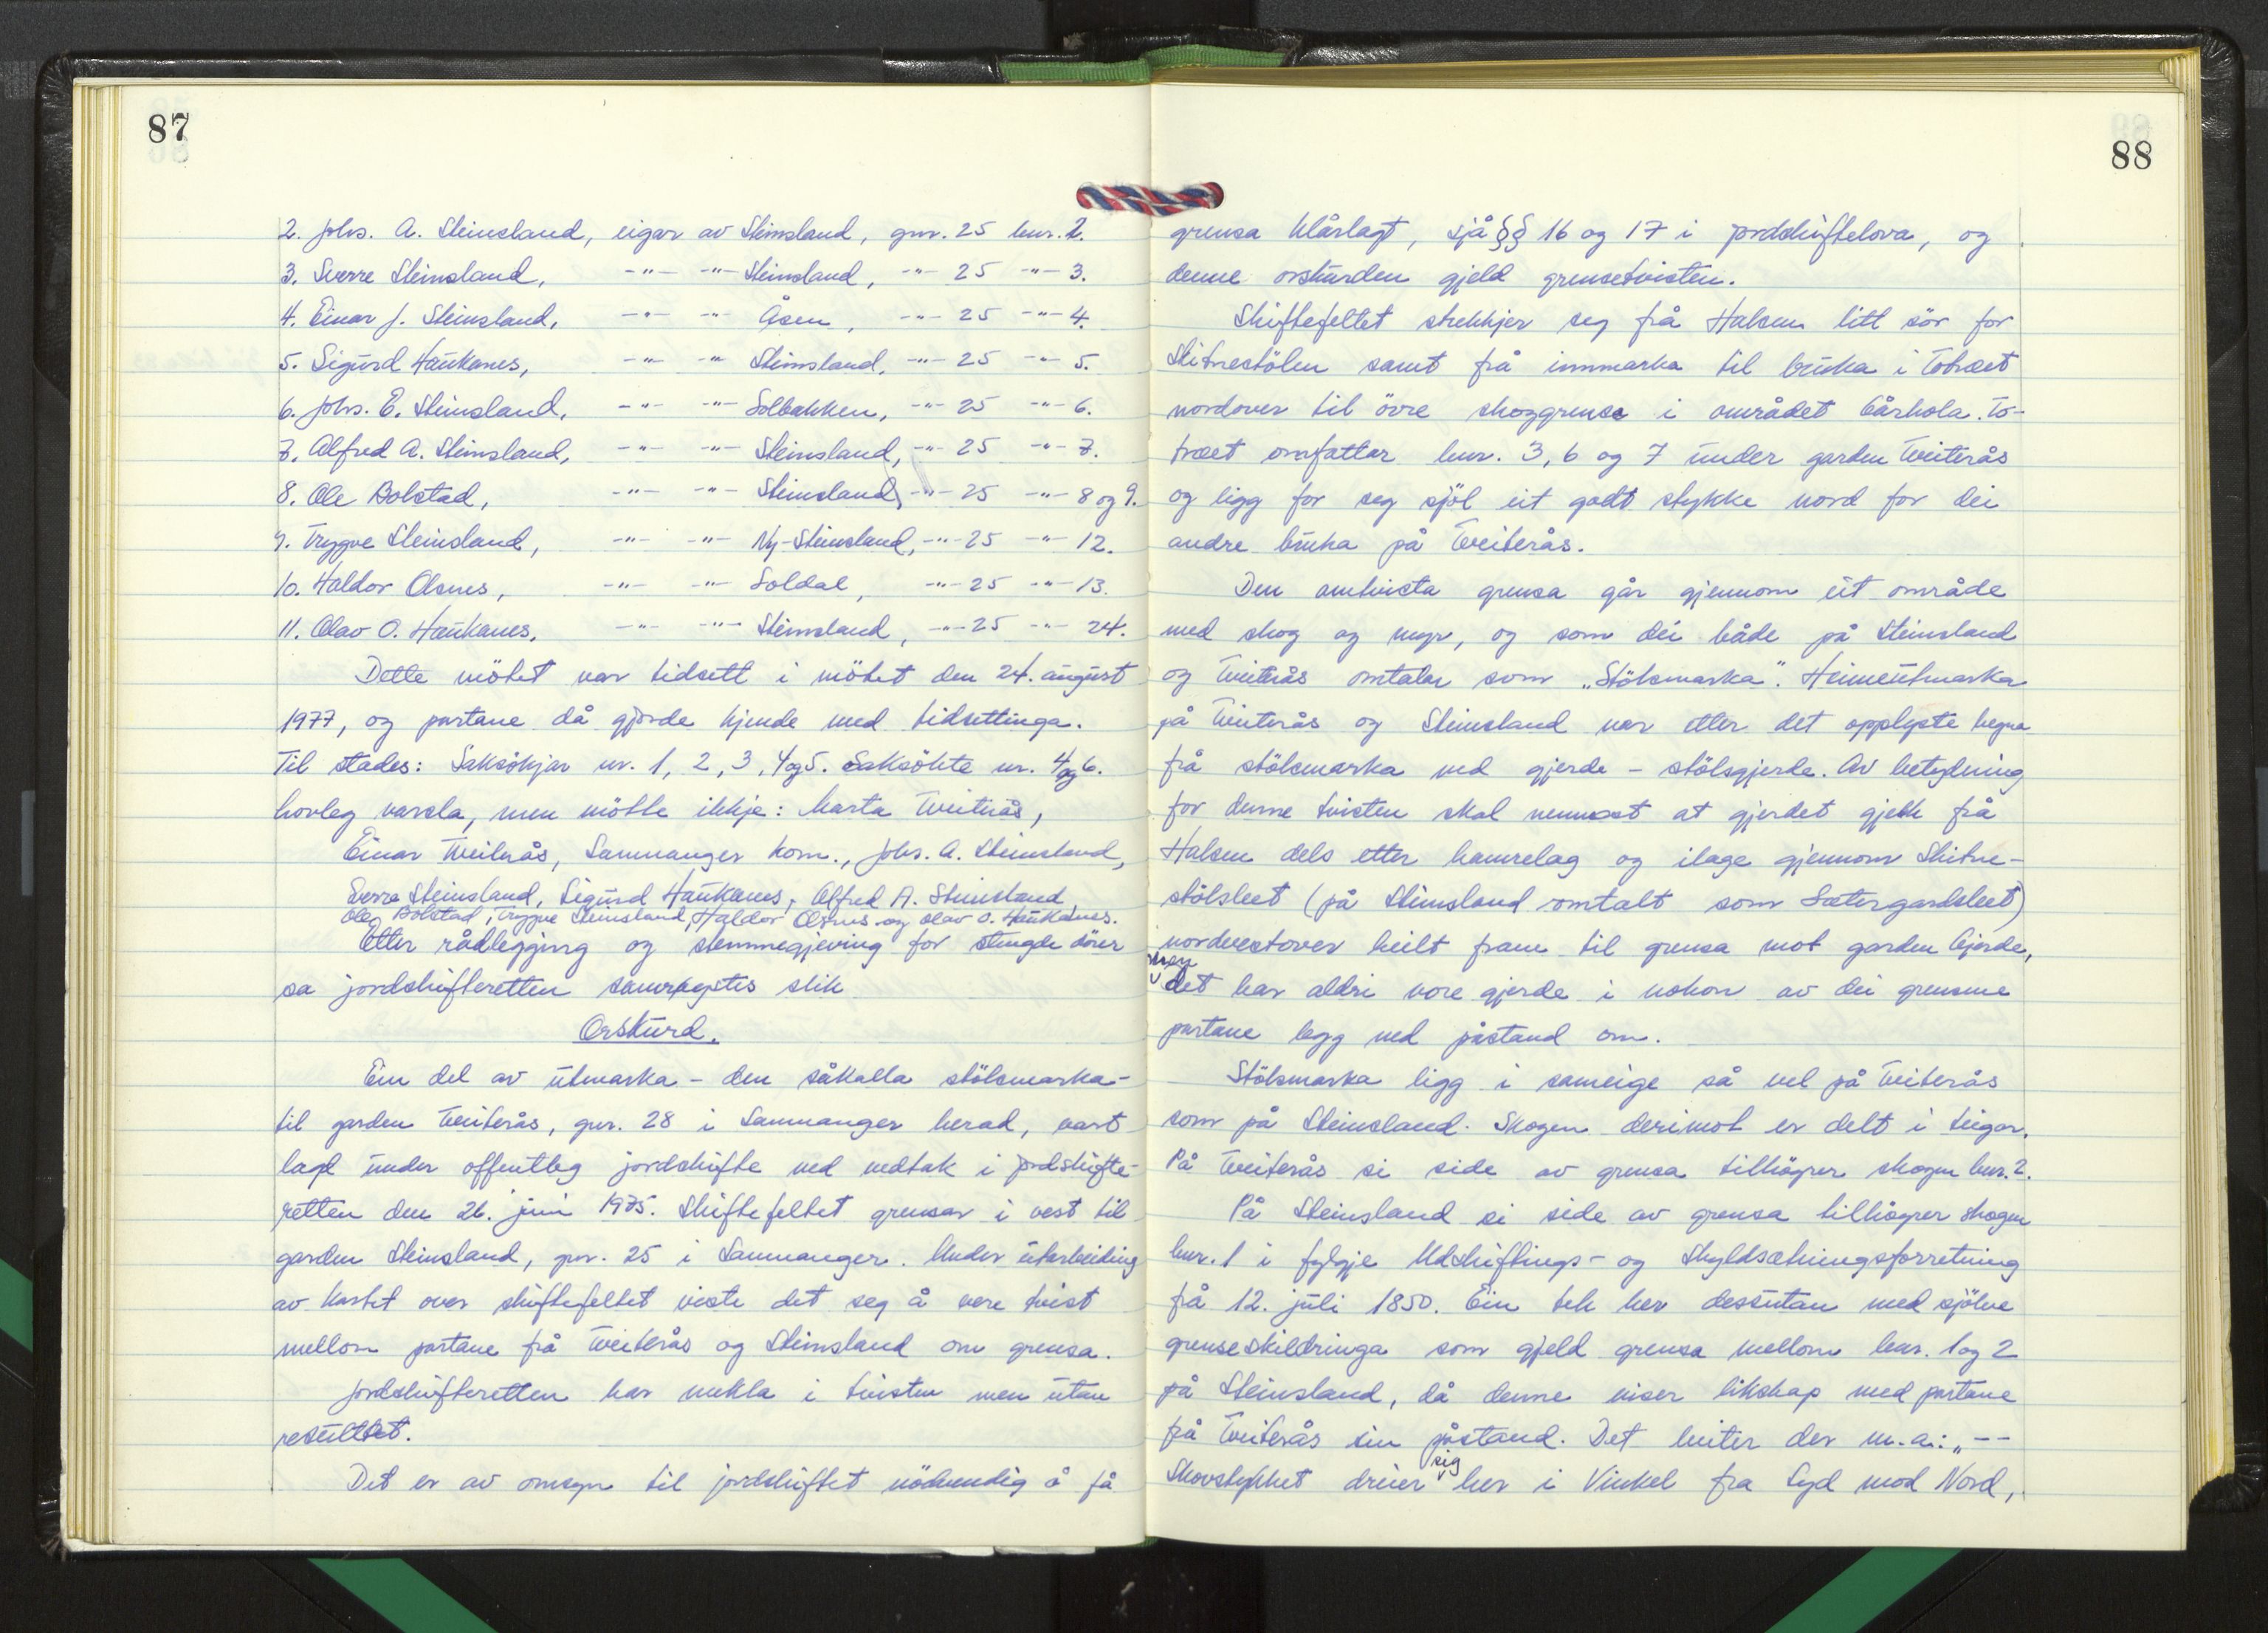 87
2. Johs. A. Steinsland, eigar av Steinsland, gnr. 25 bnr. 2.
3. Sverre Steinsland, -"- -"- Steinsland, -"- 25 -"- 3.
4. Einar J. Steinsland, -"- -"- Åsen, -"- 25 -"- 4.
5. Sigurd Haukanes, -"- -"- Steinsland, -"- 25 -"- 5.
6. Johs. E. Steinsland, -"- -"- Solbakken, -"- 25 -"- 6.
7. Alfred A. Steinsland, -"- -"- Steinsland, -"- 25 -"- 7.
8. Ole Bolstad, -"- -"- Steinsland, -"- 25 -"- 8 og 9.
9. Trygve Steinsland, -"- -"- Ny-Steinsland, -"- 25 -"- 12.
10. Haldor Olsnes, -"- -"- Soldal, -"- 25 -"- 13.
11. Olav O. Haukanes, -"- -"- Steinsland, -"- 25 -"- 24.
Dette mötet var tidsett i mötet den 24. august
1977, og partane då gjorde kjende med tidsettinga.
Til stades: Saksökjar nr. 1, 2, 3, 4 og 5. Saksökte nr. 4 og 6.
Lovleg varsla, men mötte ikkje: Marta Tveiterås,
Einar Tveiterås, Samnanger kom., Johs. A. Steinsland,
Sverre Steinsland, Sigurd Haukanes, Alfred A. Steinsland,
Ole Bolstad, Trygve Steinsland, Haldor Olsnes og Olav O. Haukanes.
Etter rådlegging og stemmegjeving for stengde dörer
sa jordskifteretten samrøystes slik
Orskurd.
Ein del av utmarka - den såkalla stölsmarka -
til garden Tveiterås, gnr. 28 i Samnanger herad, vart
lagt under offentleg jordskifte ved vedtak i jordskifte-
retten den 26. juni 1975. Skiftefeltet grensar i vest til
garden Steinsland, gnr. 25 i Samnanger. Under utarbeiding
av kartet over skiftefeltet viste det seg å vere tvist
mellom partane frå Tveiterås og Steinsland om grensa.
Jordskifteretten har mekla i tvisten men utan
resultat.
Det er av omsyn til jordskiftet nödvendig å få
88
grensa klårlagt, sjå §§ 16 og 17 i jordskiftelova, og
denne orskurden gjeld grensetvisten.
Skiftefeltet strekkjer seg frå Halsen litt sör for
Skitnestölen samt frå innmarka til bruka i Totræet
nordover til övre skoggrense i området Bårhola. To-
træet omfattar bnr. 3, 6 og 7 under garden Tveiterås
og ligg for seg sjöl eit godt stykke nord for dei
andre bruka på Tveiterås.
Den omtvista grensa går gjennom eit område
med skog og myr, og som dei både på Steinsland
og Tveiterås omtalar som „Stölsmarka". Heimeutmarka
på Tveiterås og Steinsland var etter det opplyste hegna
frå stölsmarka med gjerde - stölsgjerde. Av betydning
for denne tvisten skal nemnast at gjerdet gjekk frå
Halsen dels etter hamrelag og ilage gjennom Skitne-
stölsleet (på Steinsland omtalt som Sætergardsleet)
nordvestover heilt fram til grensa mot garden Gjerde,
men det har aldri vore gjerde i nokon av dei grensene
partane legg ned påstand om.
Stölsmarka ligg i sameige så vel på Tveiterås
som på Steinsland. Skogen derimot er delt i teigar.
På Tveiterås si side av grensa tilhöyrer skogen bnr. 2.
På Steinsland si side av grensa tilhöyrer skogen
bnr. 1 i fylgje Udskiftings- og Skyldsætningsforretning
frå 12. juli 1850. Ein tek her dessutan med sjölve
grenseskildringa som gjeld grensa mellom bnr. 1 og 2
på Steinsland, då denne viser likskap med partane
frå Tveiterås sin påstand. Det heiter der m.a.: „--
Skovstykket dreier sig her i Vinkel fra Syd mod Nord,